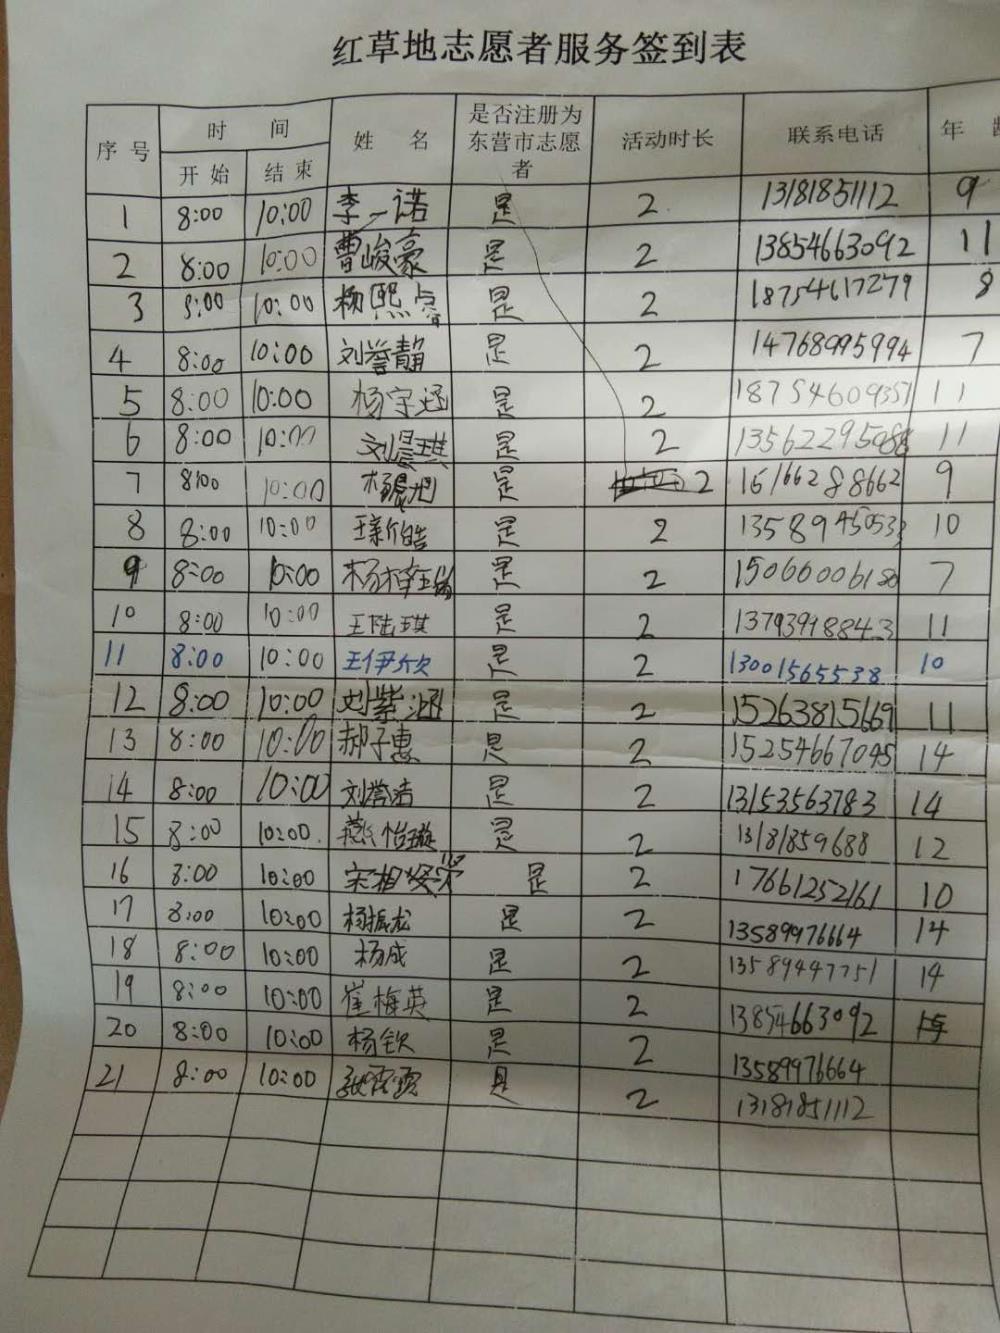 红草地志愿者服务签到表
序号 时间 姓名 是否注册为东营市志愿者 活动时长 联系电话 年
开始 结束
1 8:00 10:00 李一诺 是 2 13181851112 9
2 8:00 10:00 曹峻豪 是 2 13854663092 11
3 8:00 10:00 杨熙 是 2 18754617279 8
4 8:00 10:00 刘誉静 是 2 14768995994 7
5 8:00 10:00 杨宇涵 是 2 18754609357 11
6 8:00 10:00 刘晨琪 是 2 11
7 8:00 10:00 是 2 16166288662 9
8 8:00 10:00 是 2 10
9 8:00 10:00 是 2 7
10 8:00 10:00 王陆琪 是 2 13793918843 11
11 8:00 10:00 王伊欣 是 2 13001565538 10
12 8:00 10:00 刘紫涵 是 2 15263815669 11
13 8:00 10:00 郝子惠 是 2 15254667045 14
14 8:00 10:00 刘誉洁 是 2 13153563783 14
15 8:00 10:00 燕怡璇 是 2 13181859688 12
16 8:00 10:00 是 2 17661252161 10
17 8:00 10:00 杨振龙 是 2 13589976664 14
18 8:00 10:00 杨成 是 2 13589447751 14
19 8:00 10:00 崔梅英 是 2 13854663092
20 8:00 10:00 杨钦 是 2 13589976664
21 8:00 10:00 张霞霞 是 2 13181851112